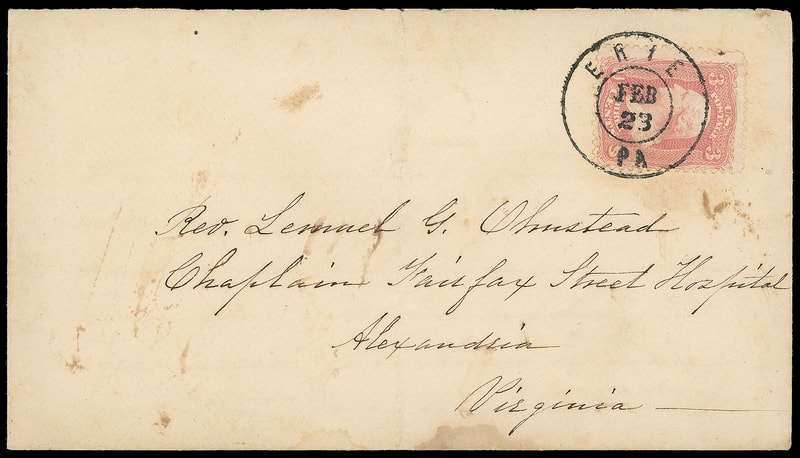 ERIE
FEB
23
PA
3 U.S. POSTAGE 3
Rev. Lemuel G. Olmstead
Chaplain Fairfax Street Hospital
Alexandria
Virginia